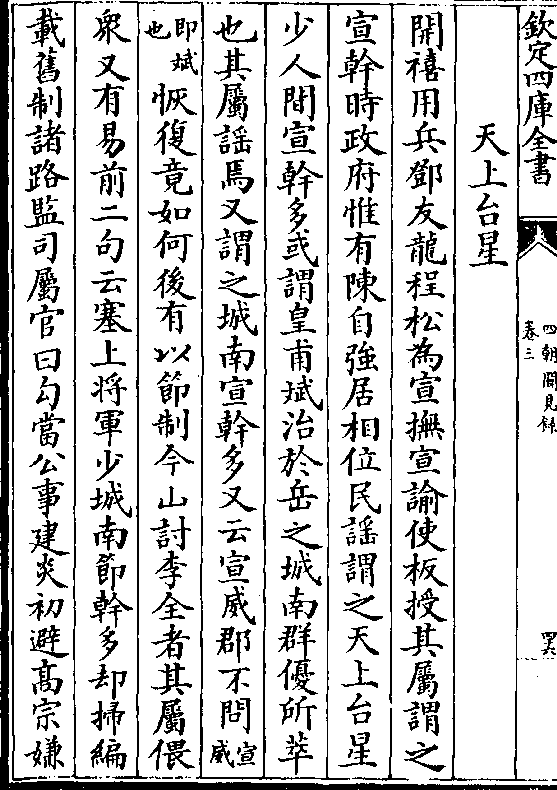 欽定四庫全書
四朝聞見錄
卷三
四六
天上台星
開禧用兵鄧友龍程松為宣撫宣諭使板授其屬謂之
宣幹時政府惟有陳自強居相位民謡謂之天上台星
少人間宣幹多或謂皇甫斌治於岳之城南群優所萃
也其屬謡焉又謂之城南宣幹多又云宣威郡不問宣威
即斌也恢復竟如何後有以節制今山討李全者其屬偎
衆又有易前二句云塞上將軍少城南節幹多却掃編
載舊制諸路監司屬官曰勾當公事建炎初避高宗嫌